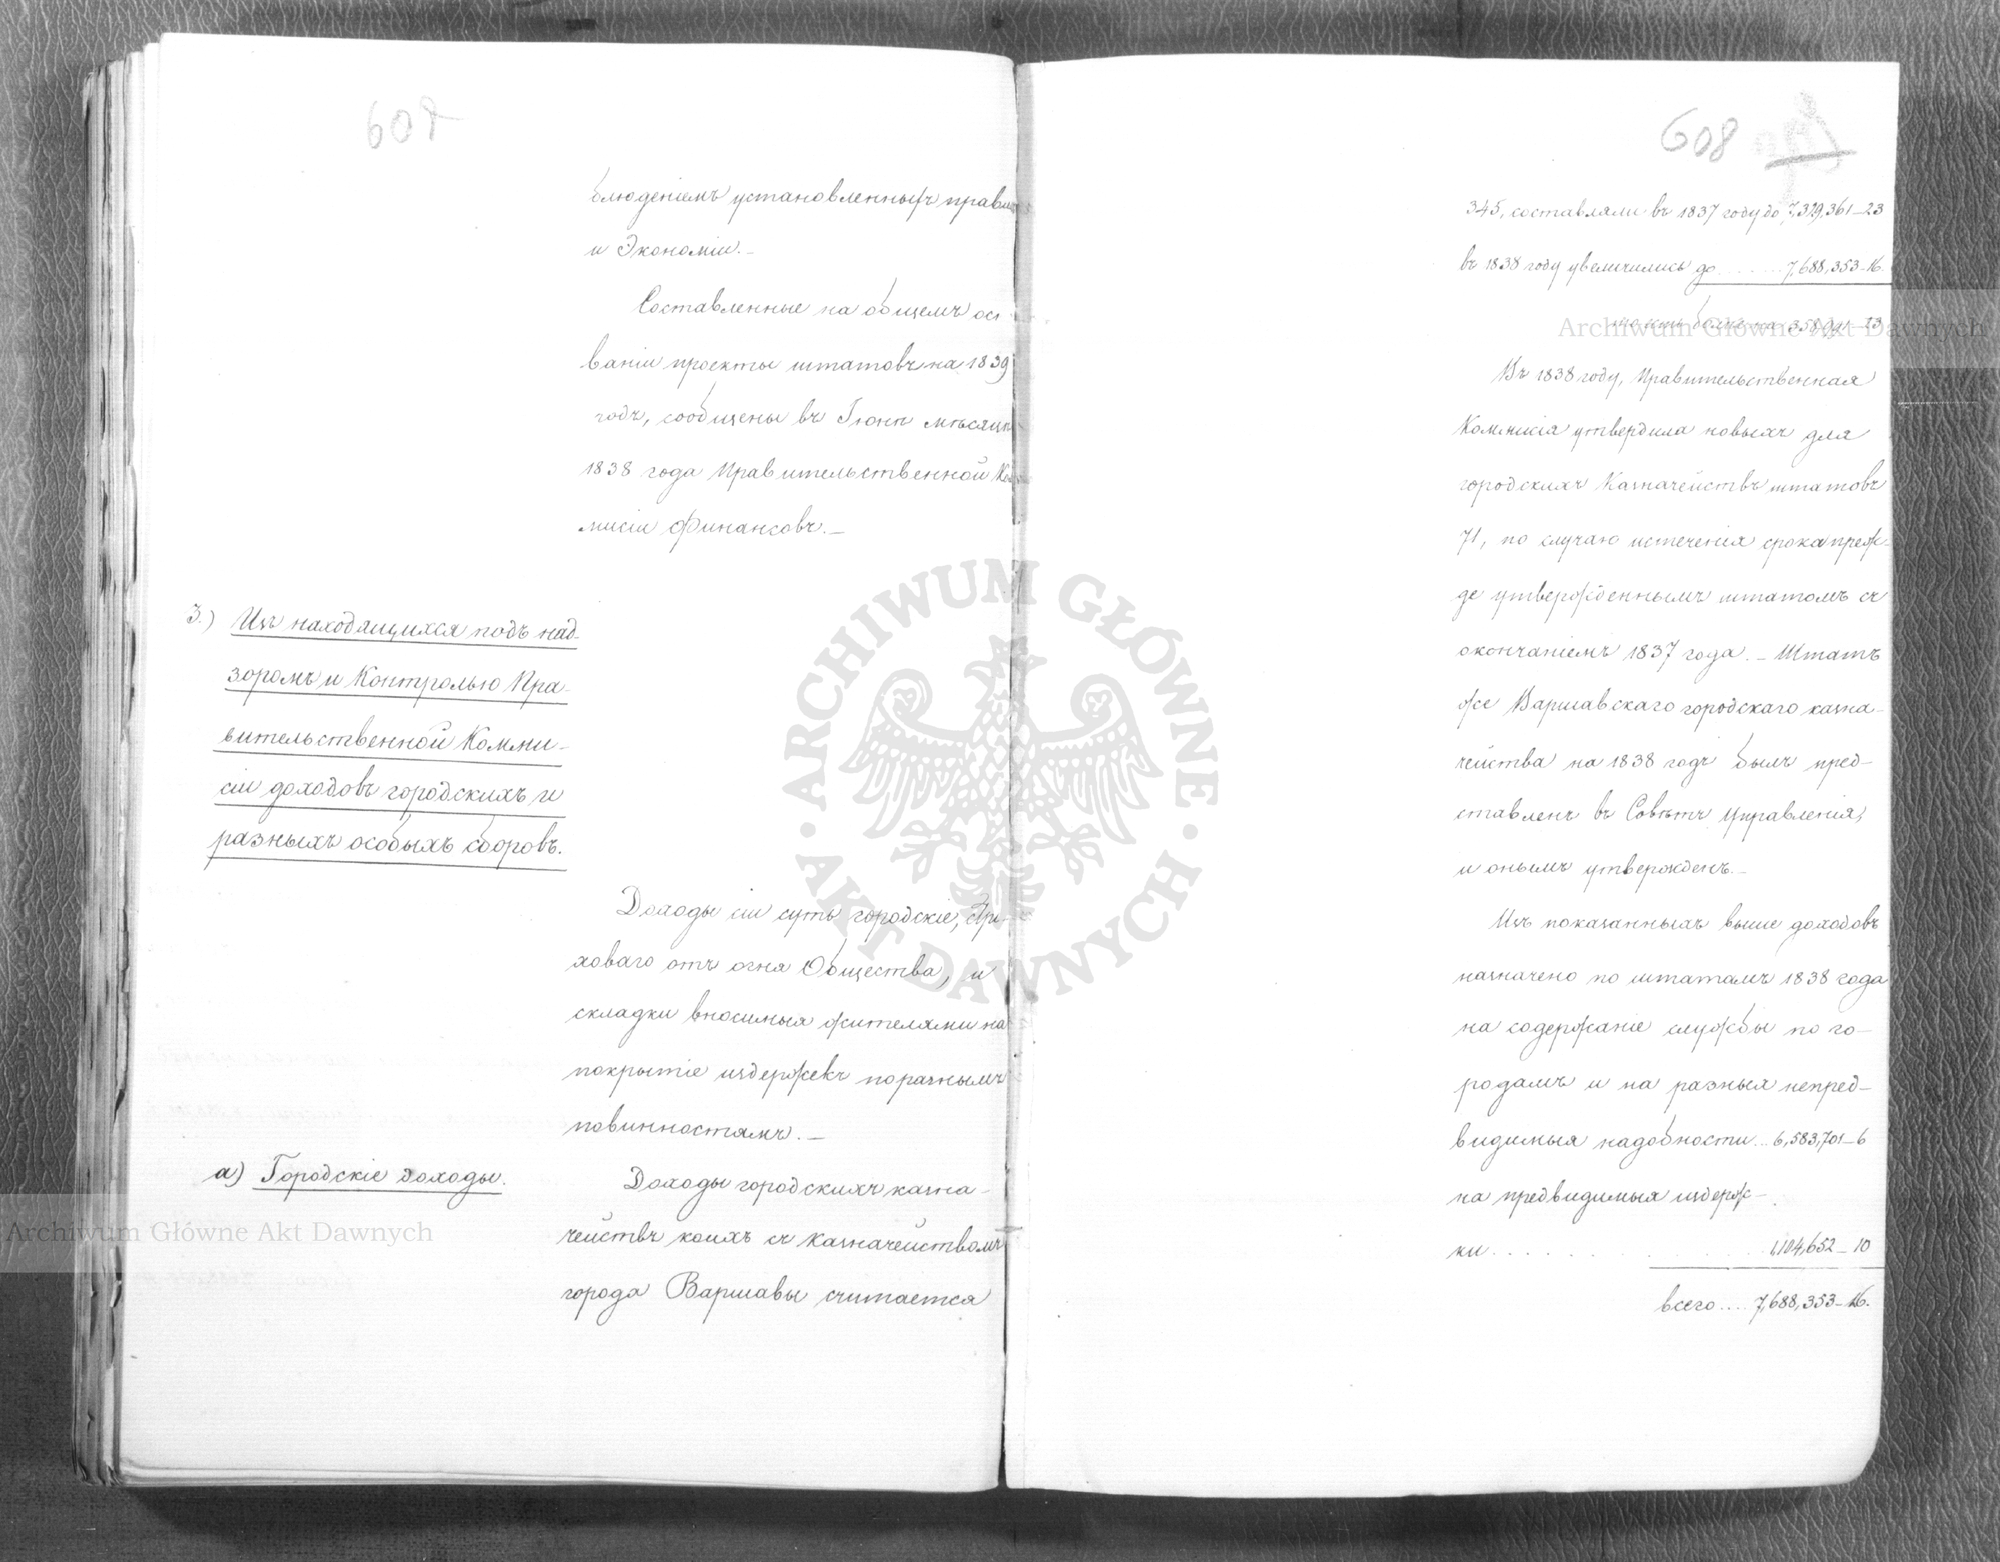 608
блюденіемъ установленныхъ правилъ
и Экономіи.–
Составленные на общемъ осн
ваніи проекты штатовъ на 1839
годъ, сообщены въ Іюнѣ мѣсяцѣ
1838 года Правительственной Ком
мисіи Финансовъ.–
3.) Изъ находящихся подъ над-
зоромъ и Контролью Пра-
вительственной Комми-
сіи доходовъ городскихъ и
разныхъ особыхъ сборовъ.
Доходы сіи суть городскіе,
ховаго отъ огня Общества, и
складки вносимыя жителями на
покрытіе издержекъ по разнымъ
повинностямъ.–
а) Городскіе доходы.
Доходы городскихъ казна-
чействъ коихъ съ Казначействомъ
города Варшавы считается
608
345, составляли въ 1837 году до 7,329,361–23
въ 1838 году увеличились до ....... 7,688,353–16
то есть болѣе на 358,991–23
Въ 1838 году, Правительственная
Коммисія утвердила новыхъ для
городскихъ Казначействъ штатовъ
71, по случаю истеченія срока преж-
де утвержденнымъ штатомъ съ
окончаніемъ 1837 года.– Штатъ
же Варшавскаго городскаго казна-
чейства на 1838 годъ былъ пред-
ставленъ въ Совѣтъ Управленія,
и онымъ утвержденъ.–
Изъ показанныхъ выше доходовъ
назначено по штатамъ 1838 года
на содержаніе службы по го-
родамъ и на разныя непред-
видимыя надобности... 6,583,701–6
на предвидимыя издерж-
ки . . . . . . . . . . 1,104,652–10
всего.... 7,688,353–16.
ARCHIWUM GŁÓWNE AKT DAWNYCH
Archiwum Główne Akt Dawnych
Archiwum Główne Akt Dawnych